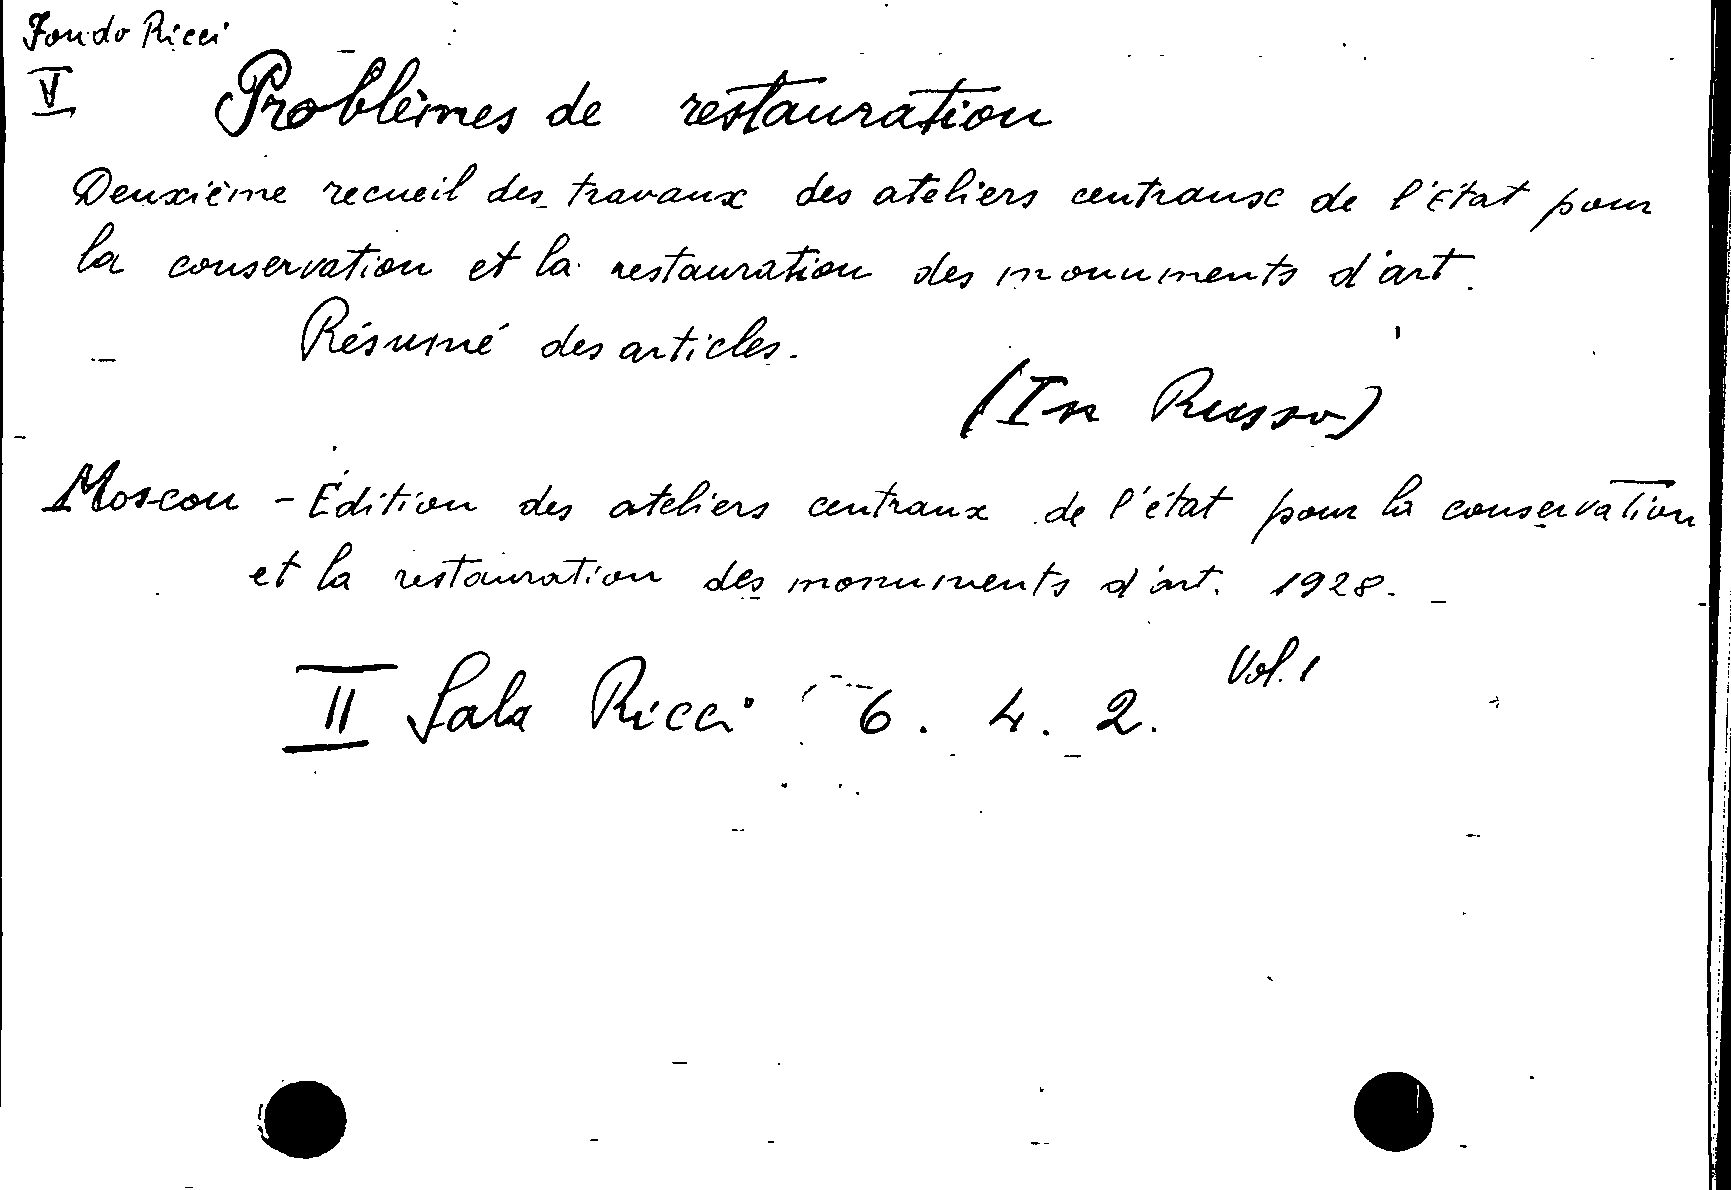 Fondo Ricci
V
Problèmes de restauration
Deuxième recueil des travaux des ateliers centraux de l'État pour
la conservation et la restauration des monuments d'art.
Résumé des articles.
(In Russo)
Moscou - Édition des ateliers centraux de l'état pour la conservation
et la restauration des monuments d'art. 1928.
Vol. 1
II Sala Ricci 6. 4. 2.